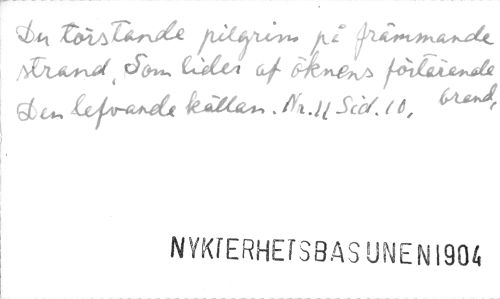 Du törstande pilgrim på främmande
strand, Som lider af öknens förtärande
brand,
Den lefvande källan. Nr. 11 Sid. 10,
NYKTERHETSBASUNEN 1904